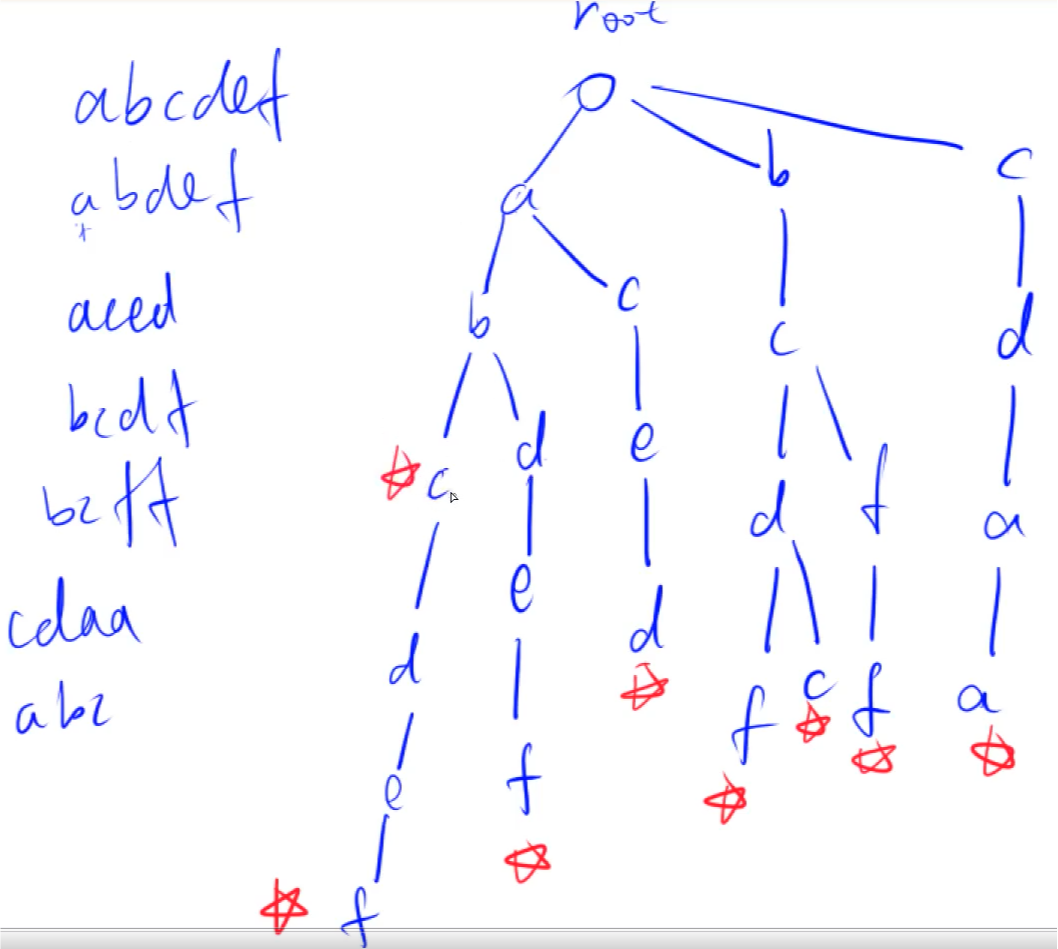 root
abcdef
abdef
aced
bcdf
bcff
cdaa
abc
b
c
a
c
b
c
d
d
e
c
d
f
a
e
d
d
f
c
f
a
e
f
f